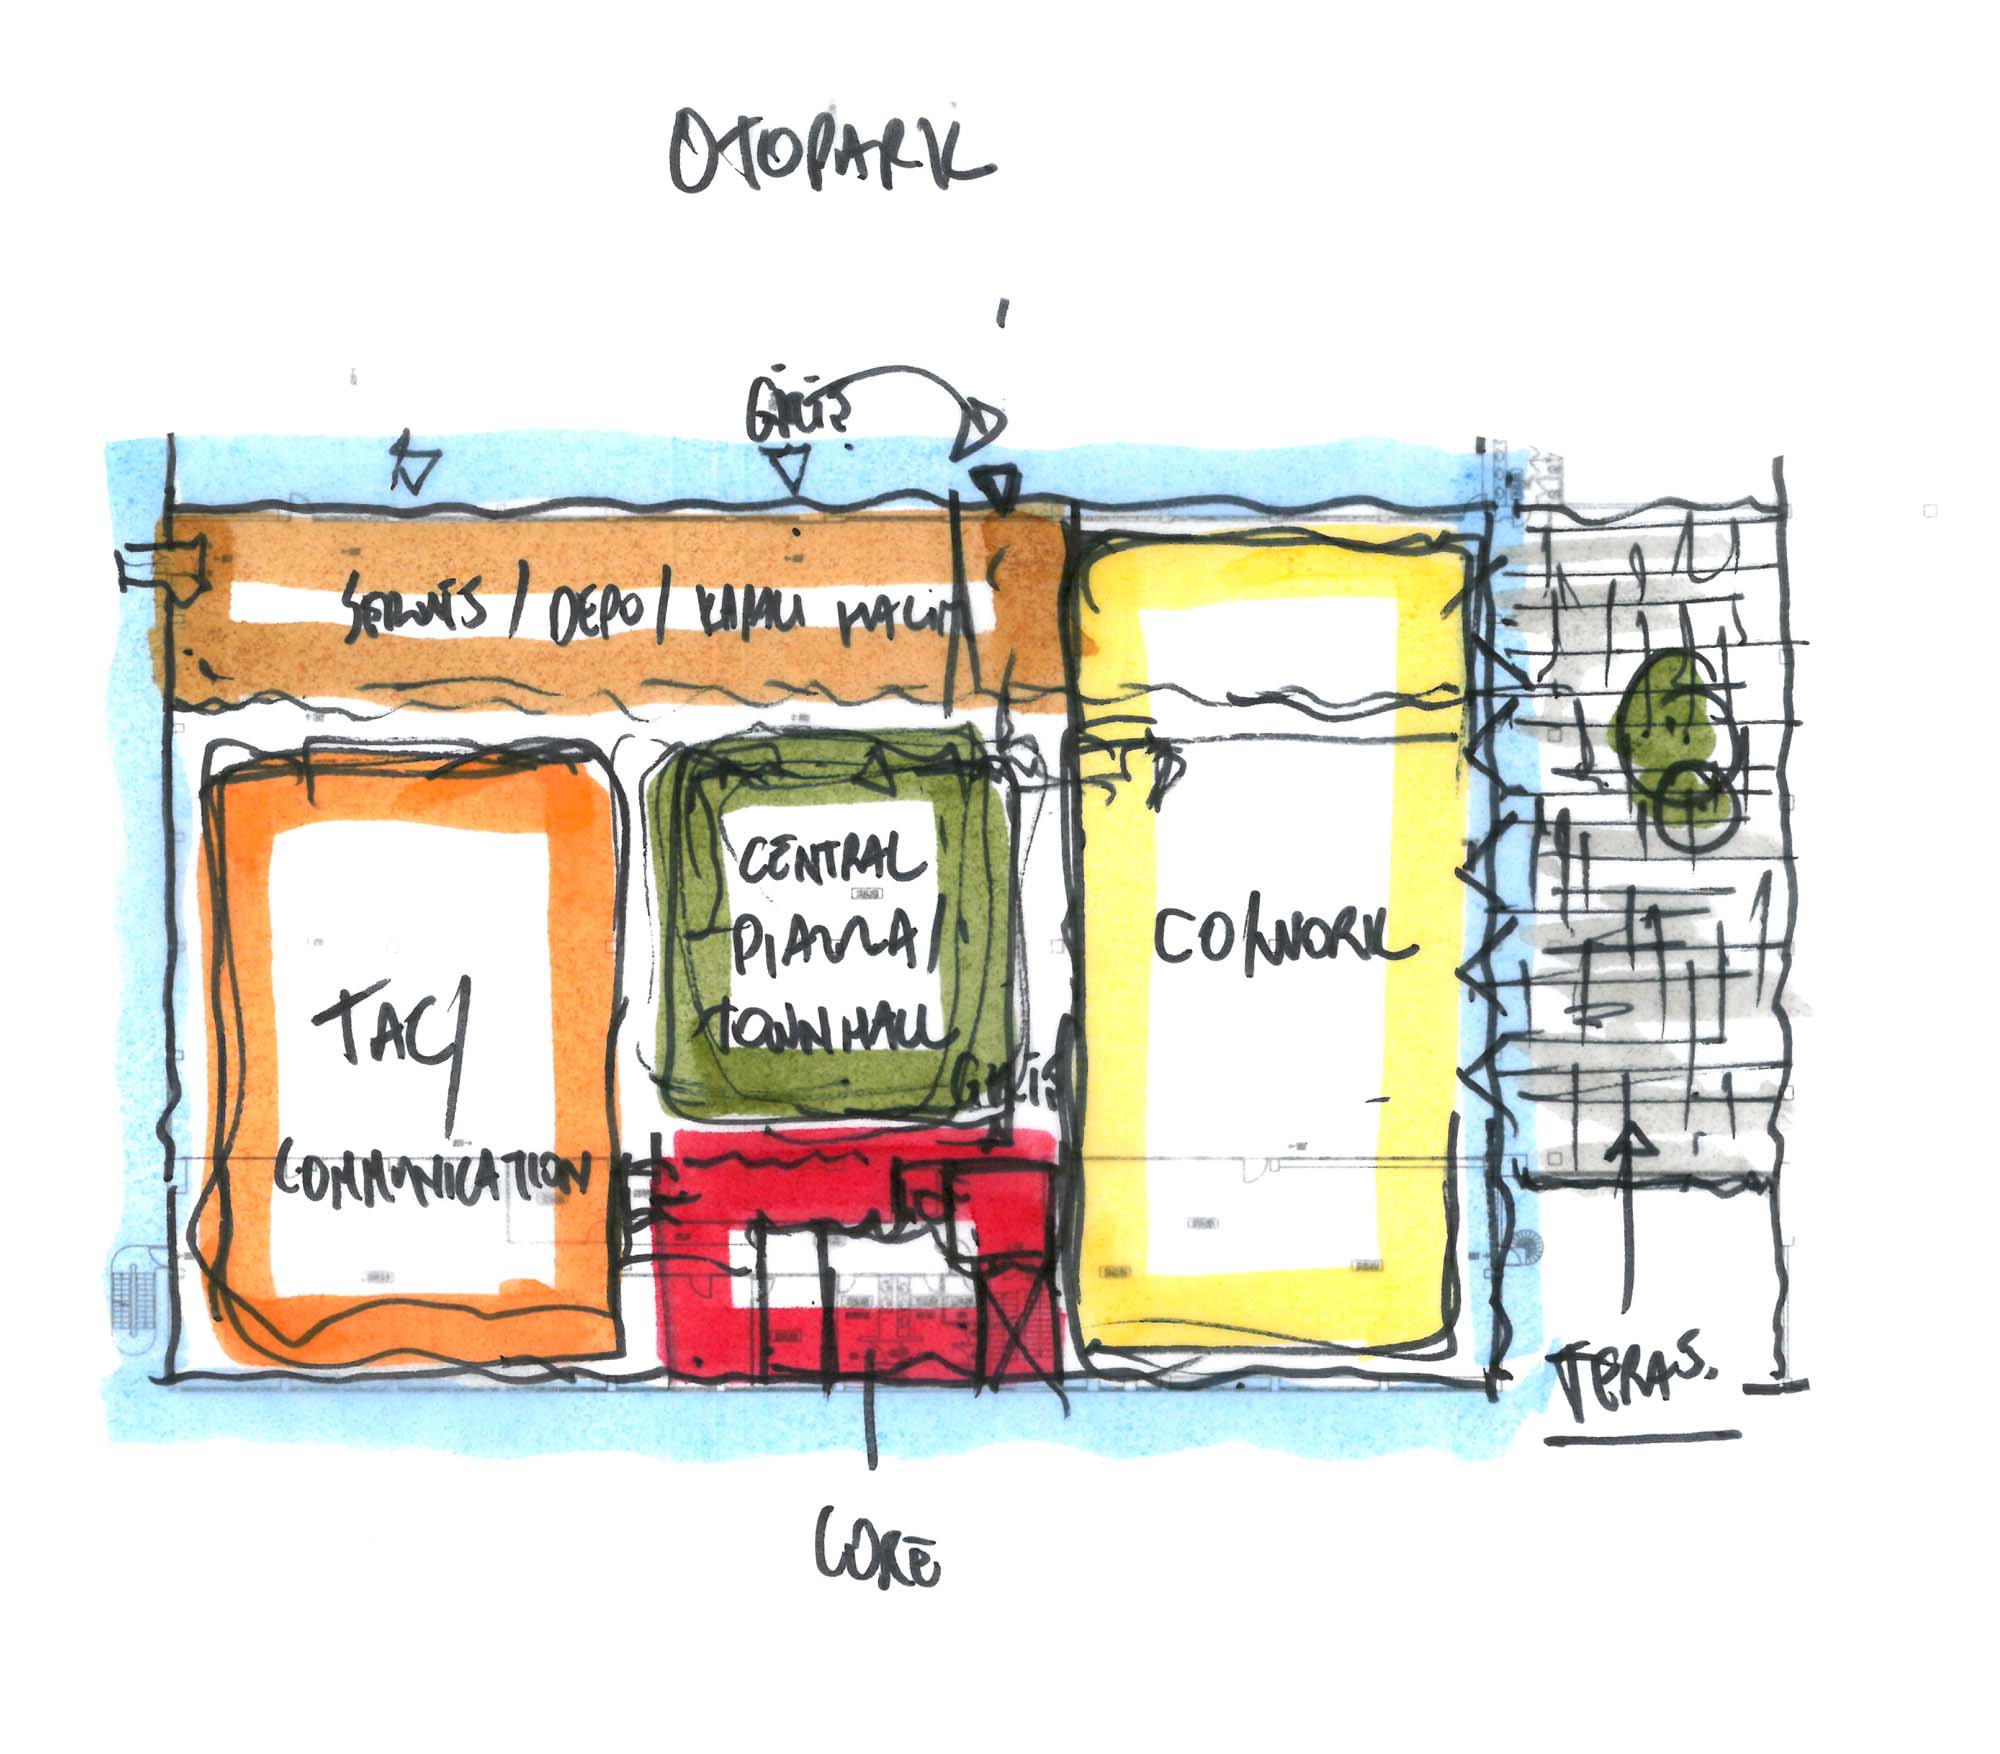 OTOPARK
GİRİŞ
SERVİS / DEPO / KAPALI HACİM
CENTRAL
PIAZZA/
TOWNHALL
CO/WORK
TAC/
COMMUNICATION
GİRİŞ
TERAS.
CORE